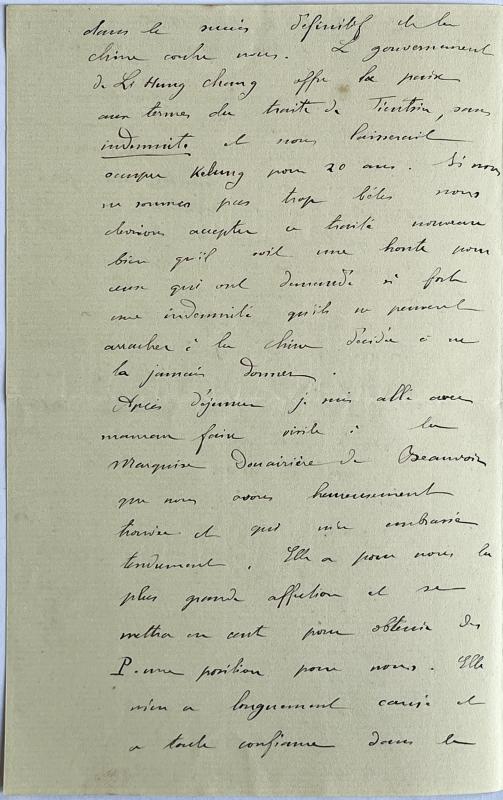 dans le succès définitif de la
Chine contre nous. Le gouvernement
de Li Hung Chang offre la paix
aux termes du traité de Tientsin, sans
indemnité et nous laisserait
occuper Kelung pour 20 ans. Si nous
ne sommes pas trop bêtes nous
devrions accepter ce traité nouveau
bien qu'il soit une honte pour
ceux qui ont demandé si fort
une indemnité qu'ils ne peuvent
arracher à la Chine décidée à ne
la jamais donner.
Après déjeuner je suis allé avec
maman faire visite à la
Marquise Douairière de Beauvoir
que nous avons heureusement
trouvée et qui m'a embrassé
tendrement. Elle a pour nous la
plus grande affection et se
mettra en cent pour obtenir des
P. une position pour nous. Elle
m'en a longuement causé et
a toute confiance dans le